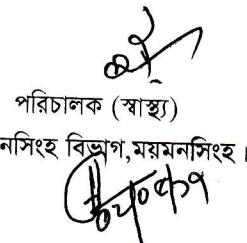 পরিচালক (স্বাস্থ্য)
নসিংহ বিভাগ,ময়মনসিংহ।